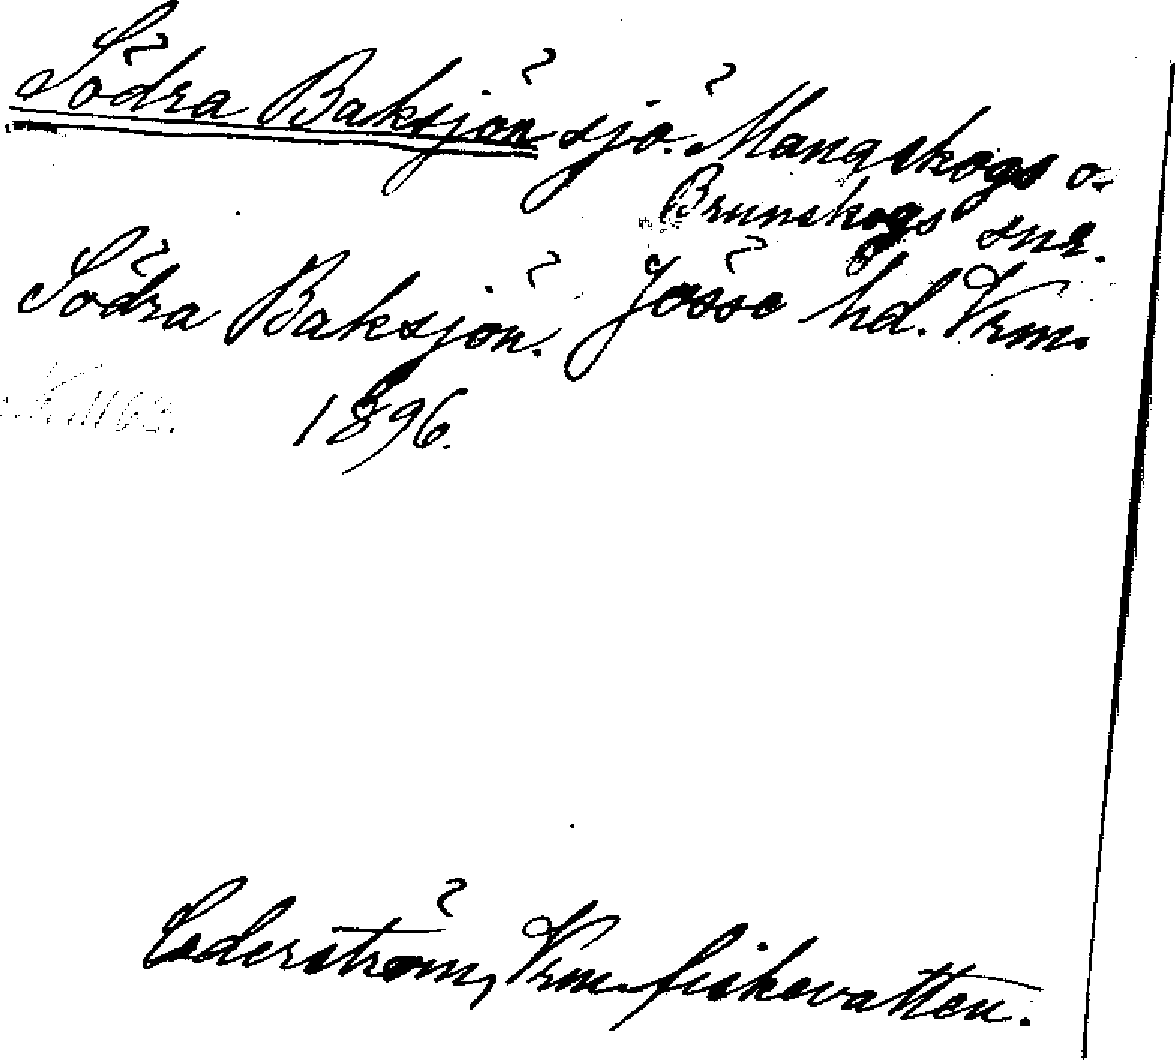 Södra Baksjön sjö. Mangskogs o.
Brunskogs snr.
Södra Baksjön. Jösse hd. Vrm.
1896.
Cederström, Vrm. fiskevatten.